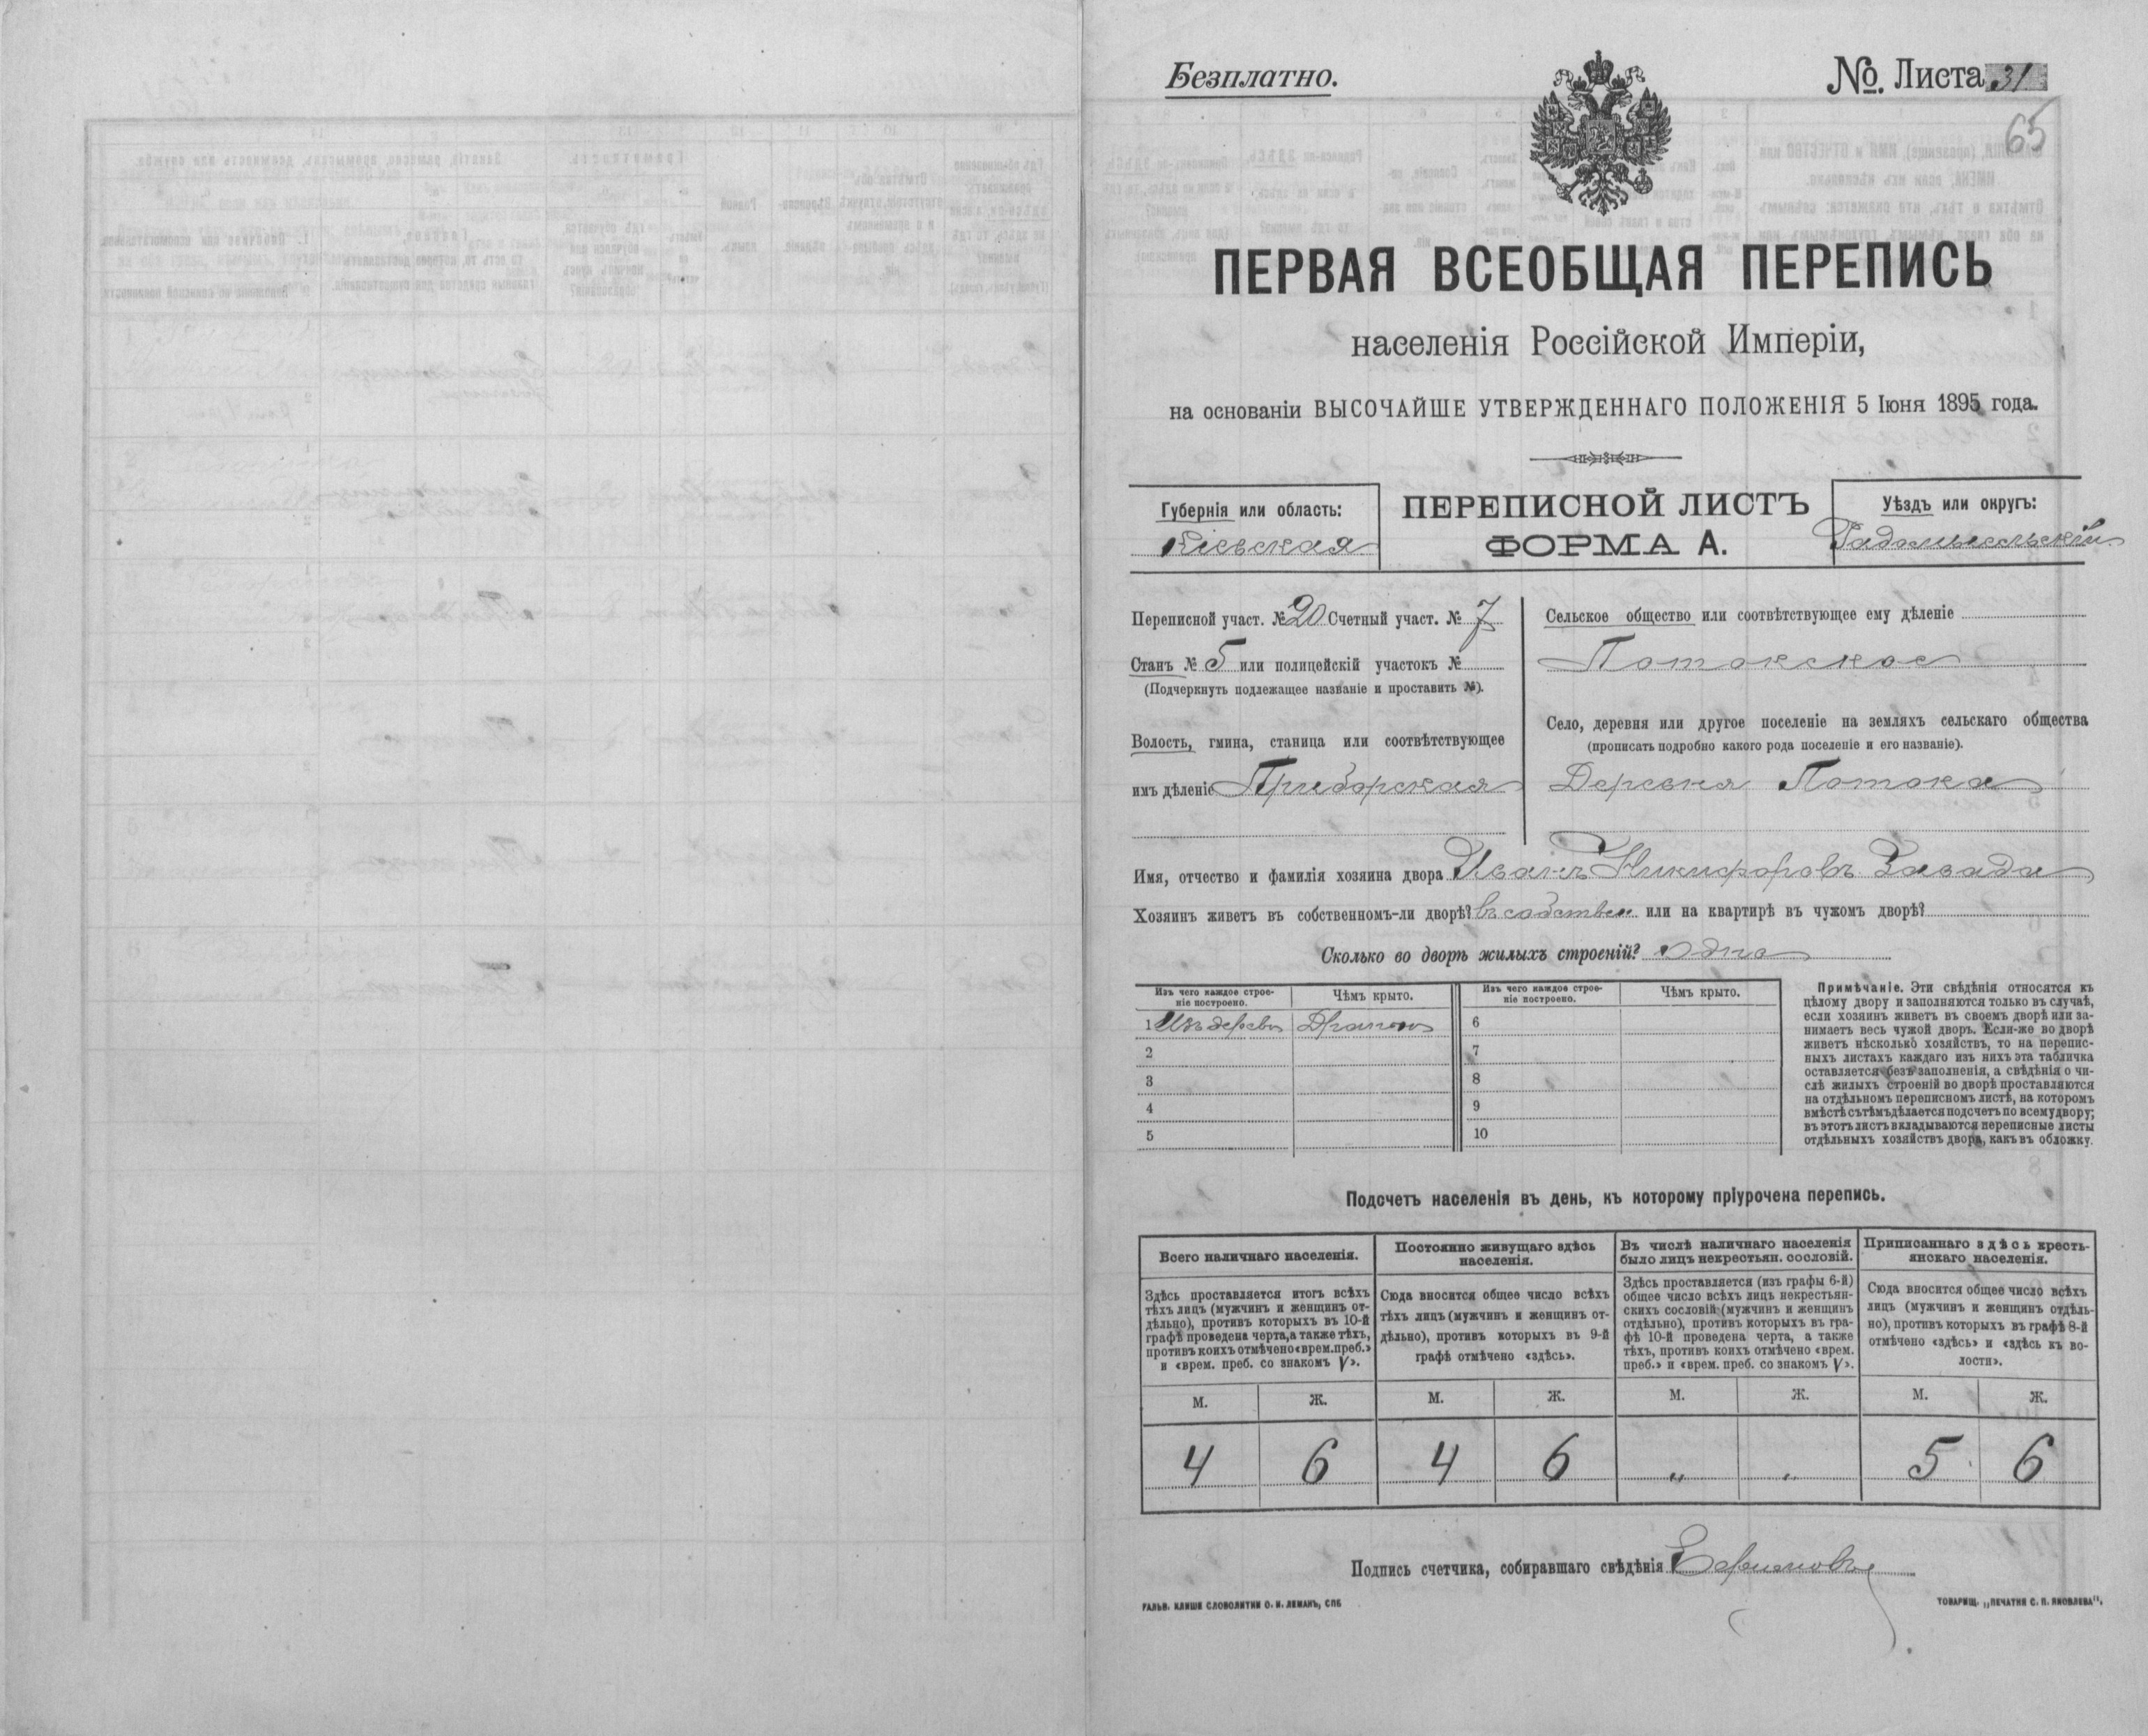 Безплатно.
№. Листа 31
65
ПЕРВАЯ ВСЕОБЩАЯ ПЕРЕПИСЬ
населенія Россійской Имперіи,
на основаніи ВЫСОЧАЙШЕ УТВЕРЖДЕННАГО ПОЛОЖЕНІЯ 5 Іюня 1895 года.
Губернія или область:
Кіевская
ПЕРЕПИСНОЙ ЛИСТЪ
ФОРМА А.
Уѣздъ или округъ:
Радомысльскій
Переписной участ. № 20 Счетный участ. № 7
Станъ № 5 или полицейскій участокъ №
(Подчеркнуть подлежащее названіе и проставить №).
Волость, гмина, станица или соотвѣтствующее
имъ дѣленіе Приборская
Сельское общество или соотвѣтствующее ему дѣленіе
Потокское
Село, деревня или другое поселеніе на земляхъ сельскаго общества
(прописать подробно какого рода поселеніе и его названіе).
Деревня Потока
Имя, отчество и фамилія хозяина двора Иванъ Никифоровъ Завада
Хозяинъ живетъ въ собственномъ-ли дворѣ? въ собствен или на квартирѣ въ чужомъ дворѣ?
Сколько во дворѣ жилыхъ строеній? Одно
Изъ чего каждое строе-
ніе построено.
Чѣмъ крыто.
Изъ чего каждое строе-
ніе построено.
Чѣмъ крыто.
1 Изъ дерева Драпою 6
2 7
3 8
4 9
5 10
Примѣчаніе. Эти свѣдѣнія относятся къ
цѣлому двору и заполняются только въ случаѣ,
если хозяинъ живетъ въ своемъ дворѣ или за-
нимаетъ весь чужой дворъ. Если-же во дворѣ
живетъ нѣсколько хозяйствъ, то на перепис-
ныхъ листахъ каждаго изъ нихъ эта табличка
оставляется безъ заполненія, а свѣдѣнія о чи-
слѣ жилыхъ строеній во дворѣ проставляются
на отдѣльномъ переписномъ листѣ, на которомъ
вмѣстѣ съ тѣмъ дѣлается подсчетъ по всему двору;
въ этотъ листъ вкладываются переписные листы
отдѣльныхъ хозяйствъ двора, какъ въ обложку.
Подсчетъ населенія въ день, къ которому пріурочена перепись.
Всего наличнаго населенія.
Здѣсь проставляется итогъ всѣхъ
тѣхъ лицъ (мужчинъ и женщинъ от-
дѣльно), противъ которыхъ въ 10-й
графѣ проведена черта, а также тѣхъ,
противъ коихъ отмѣчено «врем. преб.»
и «врем. преб. со знакомъ V».
Постоянно живущаго здѣсь
населенія.
Сюда вносится общее число всѣхъ
тѣхъ лицъ (мужчинъ и женщинъ от-
дѣльно), противъ которыхъ въ 9-й
графѣ отмѣчено «здѣсь».
Въ числѣ наличнаго населенія
было лицъ некрестьян. сословій.
Здѣсь проставляется (изъ графы 6-й)
общее число всѣхъ лицъ некрестьян-
скихъ сословій (мужчинъ и женщинъ
отдѣльно), противъ которыхъ въ гра-
фѣ 10-й проведена черта, а также
тѣхъ, противъ коихъ отмѣчено «врем.
преб.» и «врем. преб. со знакомъ V».
Приписаннаго здѣсь кресть-
янскаго населенія.
Сюда вносится общее число всѣхъ
лицъ (мужчинъ и женщинъ отдѣль-
но), противъ которыхъ въ графѣ 8-й
отмѣчено «здѣсь» и «здѣсь къ во-
лости».
М. Ж. М. Ж. М. Ж. М. Ж.
4 6 4 6 „ „ 5 6
Подпись счетчика, собиравшаго свѣдѣнія
ГАЛЬВ. КЛИШЕ СЛОВОЛИТНИ О. И. ЛЕМАНЪ, СПБ
ТОВАРИЩ. „ПЕЧАТНЯ С. П. ЯКОВЛЕВА".